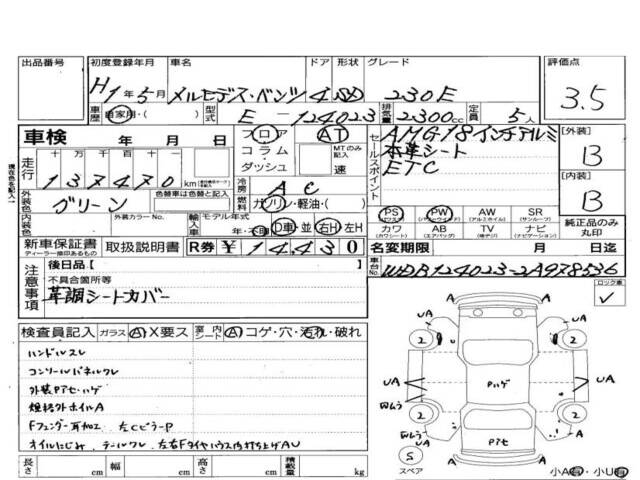 出品番号 初度登録年月 車名 ドア 形状 グレード 評価点
H1年5月 メルセデス・ベンツ 4 SD 230E 3.5
車歴 自家用・( ) 型式 E-124023 排気量 2300cc 定員 5人
車検 年 月 日
フロア コラム ダッシュ AT MTのみ記入 速
セールスポイント AMG18インチアルミ
本革シート
ETC
[外装] B
[内装] B
走行 十万 万 千 百 十 一
137470km
冷房 AC
外装色 グリーン 色替車は色替と記入
燃料 ガソリン・軽油・( )
内装色 外装カラーNo. 輸入車 モデル年式 年・不明 D車・並 右H・左H
PS (パワステ) PW (パワーウインド) AW (アルミホイル) SR (サンルーフ)
カワ (カワシート) AB (エアバッグ) TV (純テレビ) ナビ (ナビゲーション)
純正品のみ丸印
新車保証書 ディーラー捺印あるもの 取扱説明書 R券 ¥14430
名変期限 月 日迄
車台No. WDB124023-2A978536
注意事項 後日品【
不具合箇所等
革調シートカバー
ロック車
検査員記入 ガラス A・X要ス 室内シート A・コゲ・穴・汚れ・破れ
ハンドルスレ
コンソールパネルワレ
外装Pアセ・ハゲ
煙経外ホイルA
Fフェンダー耳加工 左CピラーP
オイルにじみ テールワレ 左右Fタイヤハウス内打ち上げAU
長さ cm 幅 cm 高さ cm 積載量 kg
UA A UA
2 2
UA Pハゲ UA
2 2
A Pアセ A
S スペア
A A
小A有・小U有